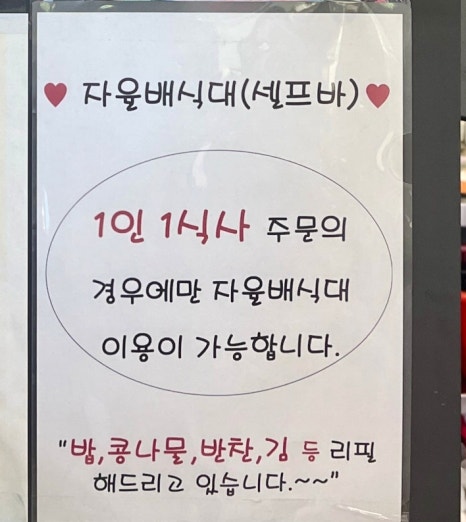 ♥ 자율배식대(셀프바) ♥
1인 1식사 주문의
경우에만 자율배식대
이용이 가능합니다.
"밥,콩나물,반찬,김 등 리필
해드리고 있습니다.~~"